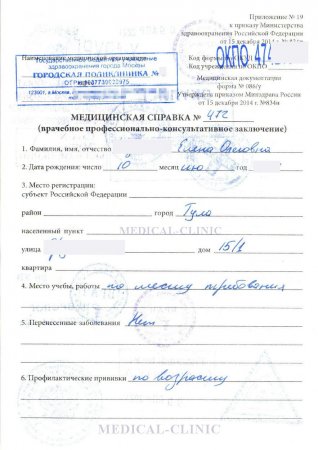 Приложение № 19
к приказу Министерства
здравоохранения Российской Федерации
от 15 декабря 2014 г. №
Наименование медицинской организации
здравоохранения города Москвы
ГОРОДСКАЯ ПОЛИКЛИНИКА №
123001, г. Москва,
Код формы
ОКПО 472
Медицинская документация
форма № 086/у
Утверждена приказом Минздрава России
от 15 декабря 2014 г. №834н
МЕДИЦИНСКАЯ СПРАВКА № 472
(врачебное профессионально-консультативное заключение)
1. Фамилия, имя, отчество Елена Олеговна
2. Дата рождения: число 10 месяц год
3. Место регистрации:
субъект Российской Федерации
район город Тула
населенный пункт
MEDICAL-CLINIC
улица дом 15/1
квартира
4. Место учебы, работы по месту требования
5. Перенесенные заболевания Нет
6. Профилактические прививки по возрасту
MEDICAL-CLINIC